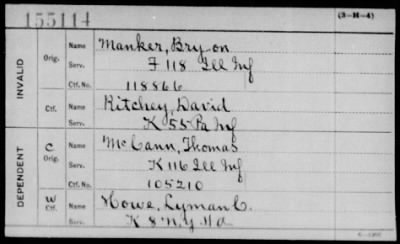 155114
(3-H-4)
INVALID
Orig.
Name Manker, Bryon
Serv. F 118 Ill Inf
Ctf. No. 118866
Ctf.
Name Ritchey, David
Serv. K 55 Pa Inf
DEPENDENT
C
Orig.
Name McCann, Thomas
Serv. K 116 Ill Inf
Ctf. No. 105210
W
Ctf.
Name Howe, Lyman C.
Serv. K 8 N.Y. H A